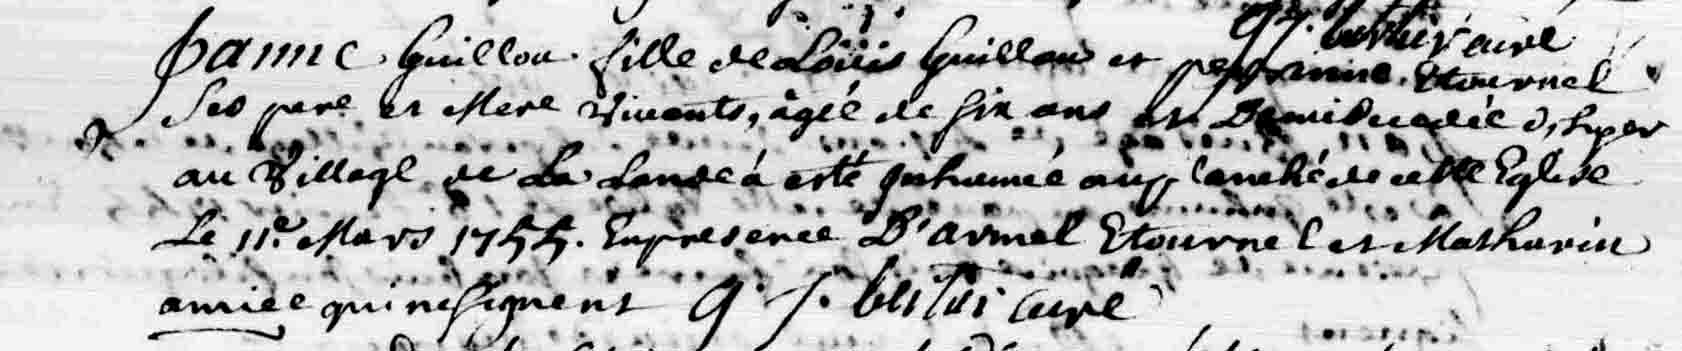 curé
Janne Guillou fille de Loüis Guillou et perrinne Etournel
Ses pere et Mere Vivants, âgée de six ans et Demi decedée d'hyer
au Village de La Lande a esté inhumée au placitre de cette Eglise
Le 11e. Mars 1755. En presence D'armel Etournel et Mathurin
amice qui ne signent curé